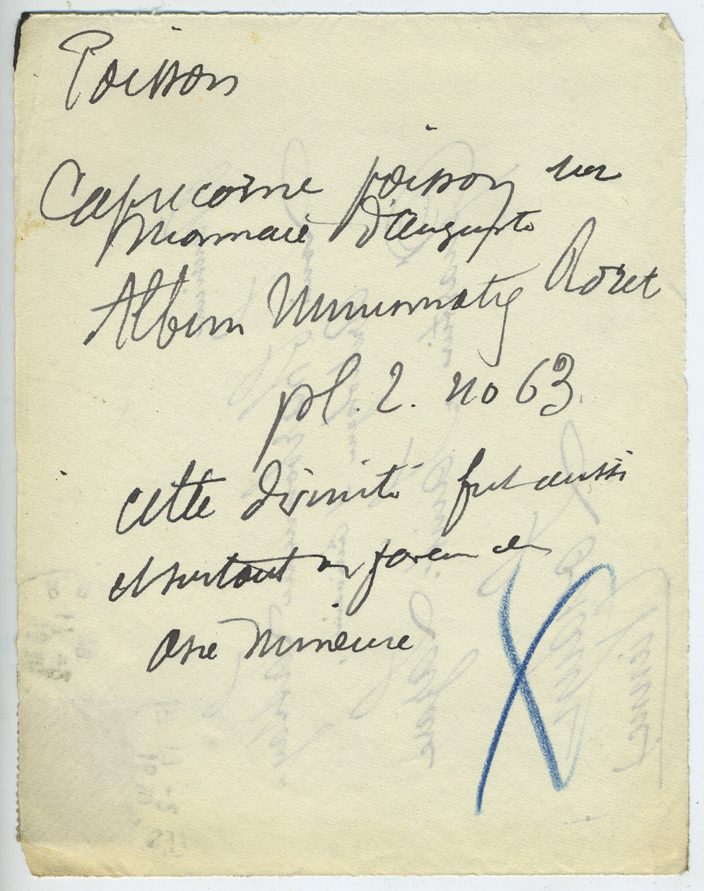 Poisson
Capricorne poisson sur
Monnaie d'Auguste
Album Numismatiq Roret
pl. 2. no 63
cette divinité fut aussi
et surtout en faveur en
Asie Mineure